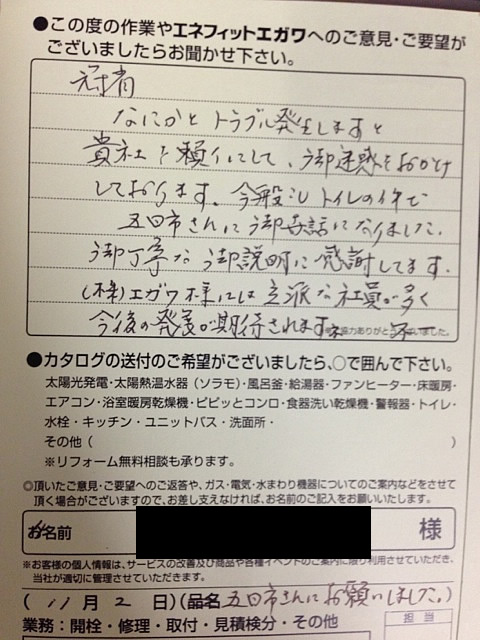 ●この度の作業やエネフィットエガワへのご意見・ご要望が
ございましたらお聞かせ下さい。
冠省
なにかとトラブル発生しますと
貴社を頼りにして、御迷惑をおかけ
しております。今般もトイレの件で
五日市さんに御世話になりました。
御丁寧な御説明に感謝してます。
(株)エガワ様には立派な社員が多く
今後の発展が期待されます
●カタログの送付のご希望がございましたら、○で囲んで下さい。
太陽光発電・太陽熱温水器(ソラモ)・風呂釜・給湯器・ファンヒーター・床暖房・
エアコン・浴室暖房乾燥機・ピピッとコンロ・食器洗い乾燥機・警報器・トイレ・
水栓・キッチン・ユニットバス・洗面所・
その他( )
※リフォーム無料相談も承ります。
◎頂いたご意見・ご要望へのご返答や、ガス・電気・水まわり機器についてのご案内などをさせて
頂く場合がございますので、お差し支えなければ、お名前のご記入をお願いいたします。
お名前 様
※お客様の個人情報は、サービスの改善及び商品や各種イベントのご案内に限り利用させていただき、
当社が適切に管理させていただきます。
(11月2日)(品名 五日市さんにお願いしました。)
業務:開栓・修理・取付・見積検分・その他
担当